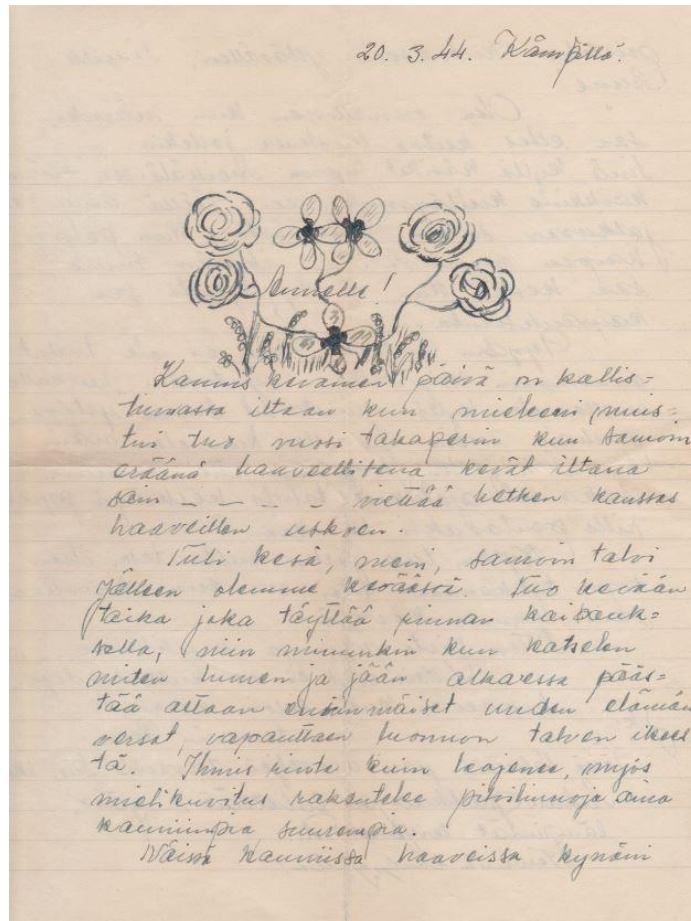 20. 3. 44. Kämpällä.
Annelle!
Kaunis keväinen päivä on kallis=
tumassa iltaan kun mieleeni muis=
tui tuo vuosi takaperin kun samoin
eräänä haaveellisena kevät iltana
sain _ _ _ _ viettää hetken kanssas
haaveillen uskoen.
Tuli kesä, meni, samoin talvi
Jälleen olemme keväässä. Tuo kevään
taika joka täyttää rinnan kaipauk=
sella, niin minunkin kun katselen
miten lumen ja jään alkaessa pääs=
tää altaan ensimmäiset uuden elämän
versot, vapauttaen luonnon talven ikees
tä. Ihmis rinta kuin laajenee, myös
mielikuvitus rakentelee pilvilinnoja aina
kauniimpia suurempia.
Näissä kauniissa haaveissa kynäni